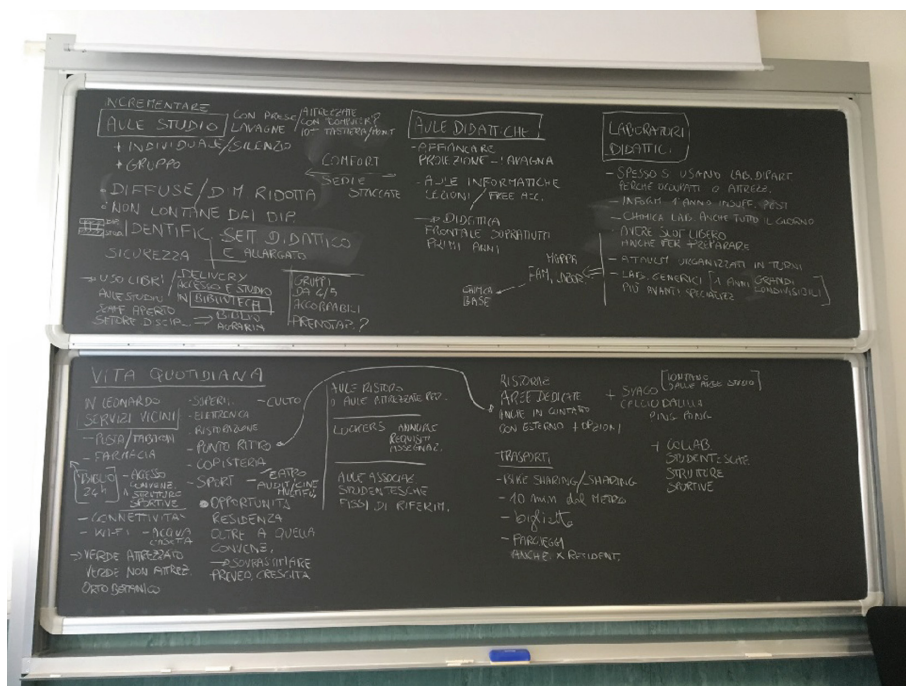 INCREMENTARE
AULE STUDIO
CON PRESE/
LAVAGNE
ATTREZZATE
CON COMPUTER?
+ INDIVIDUALE/SILENZIO
+ GRUPPO
COMFORT
SEDIE
STACCATE
- DIFFUSE/DIM RIDOTTA
- NON LONTANE DAI DIP.
IDENTIFIC
SETT. DIDATTICO
E ALLARGATO
SICUREZZA
→ USO LIBRI/
AULE STUDIO
APERTO
DELIVERY
ACCESSO E STUDIO
IN BIBLIOTECA
AGRARIA
GRUPPI
DA 4/5
ACCORPABILI
PRENOTAZ.?
AULE DIDATTICHE
- AFFIANCARE
PROIEZIONE - LAVAGNA
- AULE INFORMATICHE
LEZIONI / FREE ACC.
→ DIDATTICA
FRONTALE SOPRATUTTO
PRIMI ANNI
MAPPA
CHIMICA
BASE
LABORATORI
DIDATTICI
- SPESSO SI USANO LAB. DIPART.
PERCHÉ OCCUPATI O ATTREZZ.
- INFORM 1° ANNO INSUFF. POST
- CHIMICA LAB. ANCHE TUTTO IL GIORNO
AVERE SLOT LIBERO
ANCHE PER PREPARARE
- ATTUALM ORGANIZZATI IN TURNI
- LAB. GENERICI
PIÙ AVANTI SPECIALIZZ
1 ANNI GRANDI
CONDIVISIBILI
VITA QUOTIDIANA
IN LEONARDO
SERVIZI VICINI
- POSTA/TABACCHI
- FARMACIA
BIBLIO
24h
- ACCESSO
CONVENZ.
A STRUTTURE
SPORTIVE
- CONNETTIVITÀ
- WI-FI
→ VERDE ATTREZZATO
VERDE NON ATTREZ.
ORTO BOTANICO
- SUPERM.
- ELETTRONICA
- RISTORAZIONE
- PUNTO RITIRO
- COPISTERIA
- SPORT
- CULTO
- TEATRO
AUDIT/CINE
MULTIFU.
OPPORTUNITÀ
RESIDENZA
OLTRE A QUELLA
CONVENZ.
→ SOVRASTIMARE
PREVED. CRESCITA
AULE RISTORO
O AULE ATTREZZATE PER.
LOCKERS
ANNUALE
REQUISITI
ASSEGNAZ.
AULE ASSOCIAZ
STUDENTESCHE
FISSI DI RIFERIM.
RISTORAZ
AREE DEDICATE
ANCHE IN CONTATTO
CON ESTERNO + OPZIONI
+ SVAGO
CALCIO BALILLA
PING PONG
LONTANO
DALLE AREE STUDIO
+ COLLAB.
STUDENTESCHE
STRUTTURE
SPORTIVE
TRASPORTI
- BIKE SHARING/SHARING
- 10 min dal METRO
- biglietto
- PARCHEGGI
ANCHE X RESIDENT.